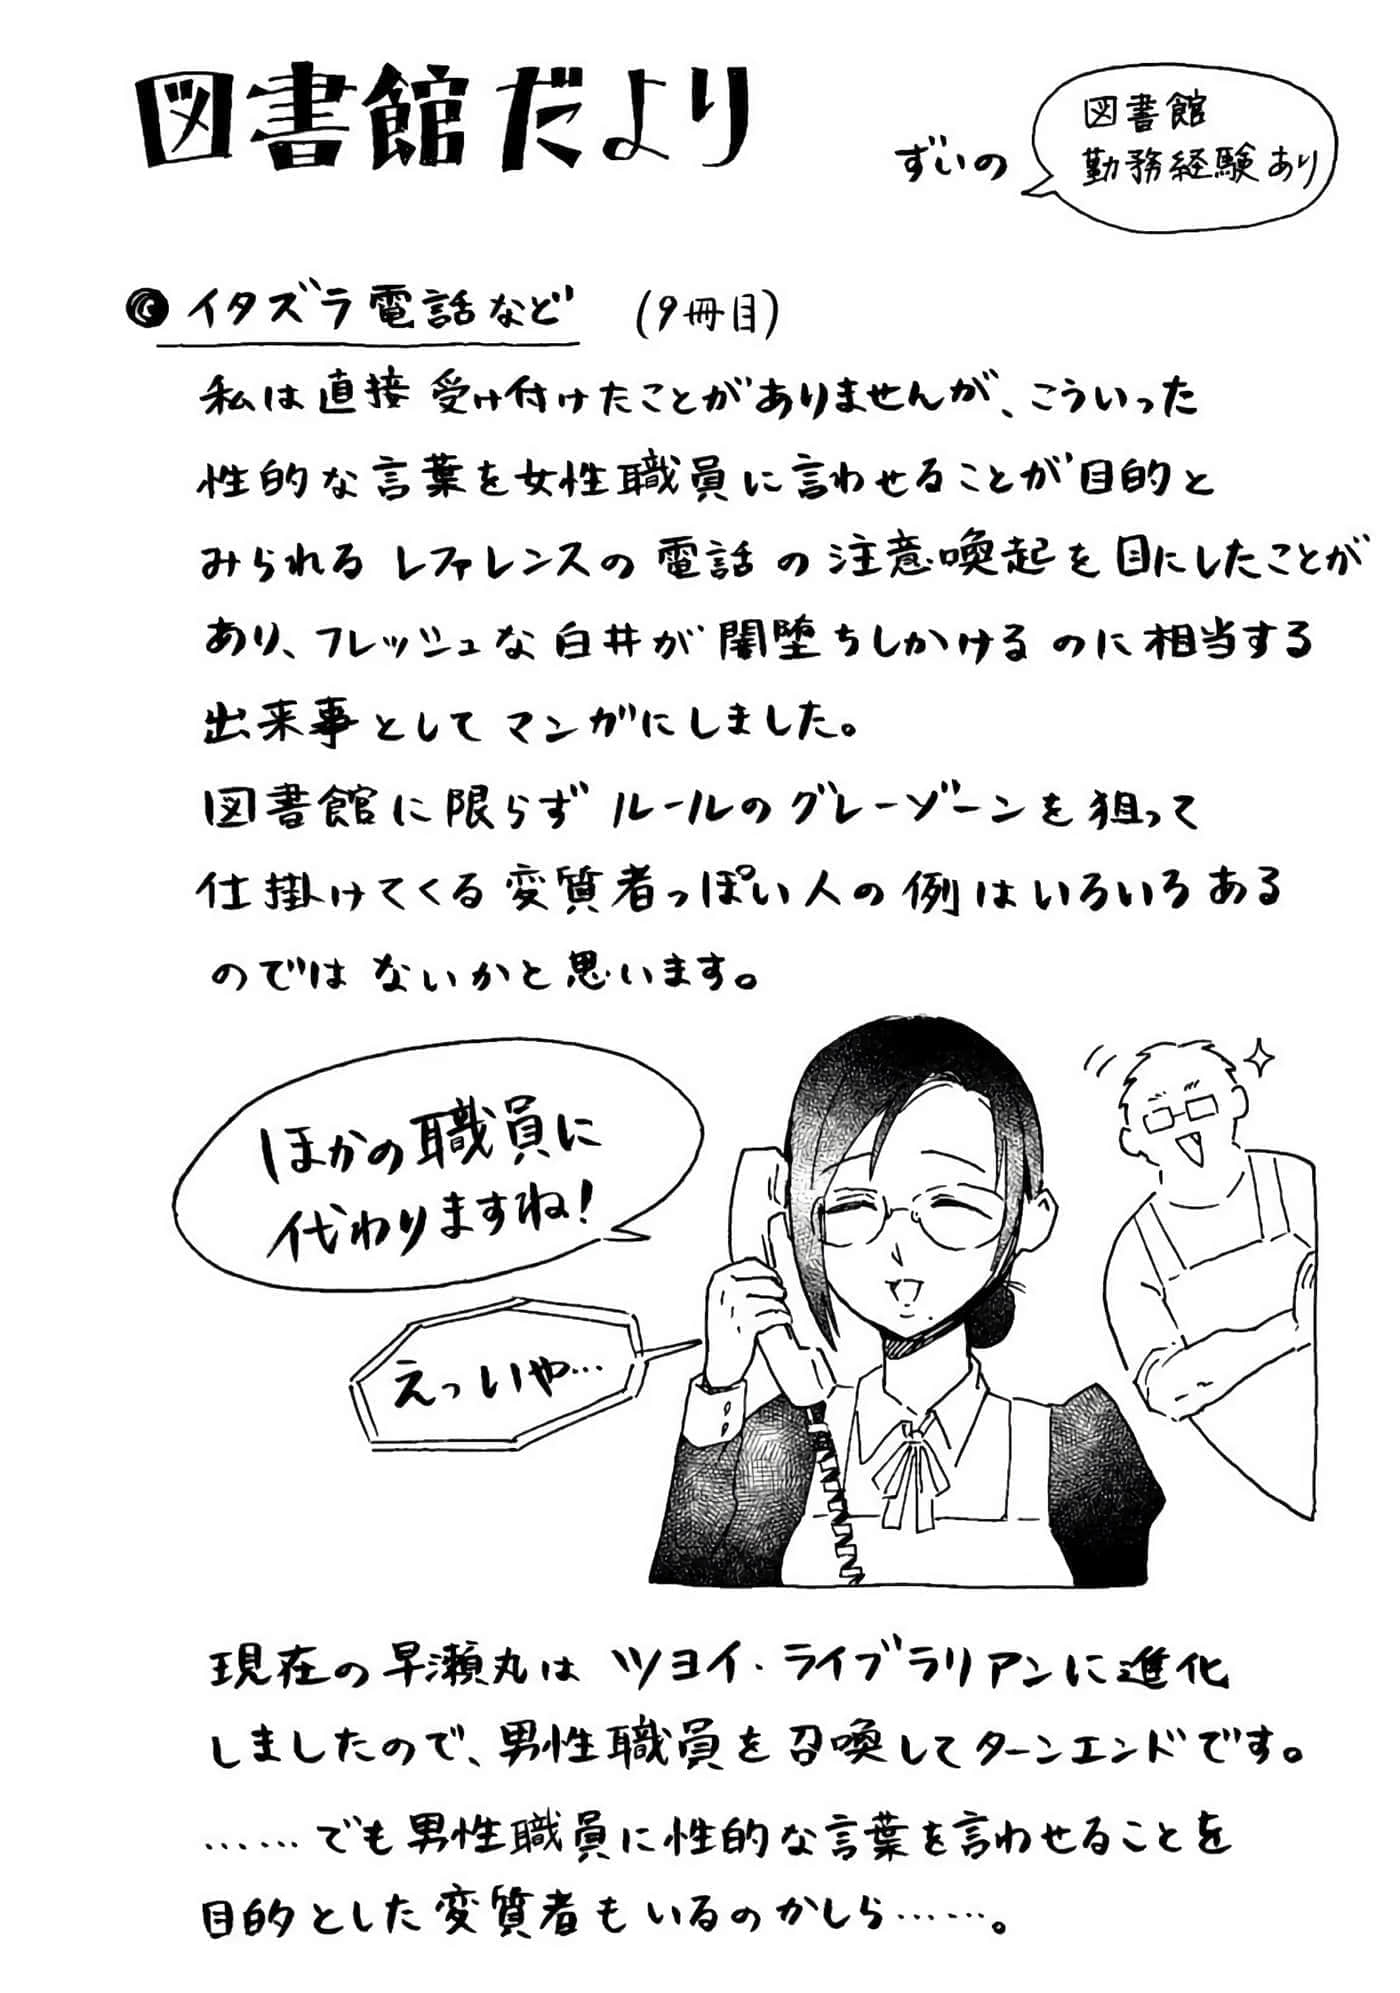 図書館だより
ずいの
図書館
勤務経験あり
イタズラ電話など (9冊目)
私は直接受け付けたことがありませんが、こういった
性的な言葉を女性職員に言わせることが目的と
みられるレファレンスの電話の注意喚起を目にしたことが
あり、フレッシュな白井が闇堕ちしかけるのに相当する
出来事としてマンガにしました。
図書館に限らずルールのグレーゾーンを狙って
仕掛けてくる変質者っぽい人の例はいろいろある
のではないかと思います。
ほかの職員に
代わりますね!
えっいや…
現在の早瀬丸はツヨイ・ライブラリアンに進化
しましたので、男性職員を召喚してターンエンドです。
……でも男性職員に性的な言葉を言わせることを
目的とした変質者もいるのかしら……。